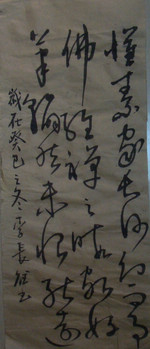 懷素家長沙幼而事
佛經禪之暇頗好
筆翰然未恨能遠
歲在癸巳之冬李長